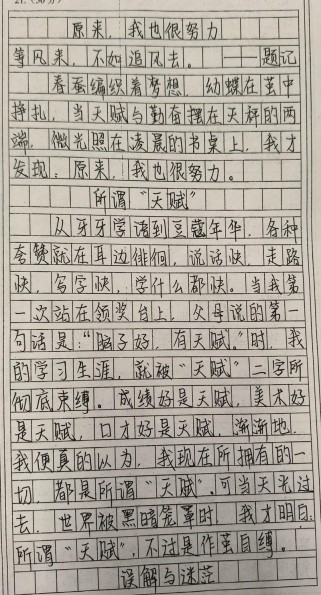 21.(50分)
原来，我也很努力
等风来，不如追风去。——题记
春蚕编织着梦想，幼蝶在茧中
挣扎，当天赋与勤奋摆在天秤的两
端，微光照在凌晨的书桌上，我才
发现：原来，我也很努力。
所谓“天赋”
从牙牙学语到豆蔻年华，各种
夸赞就在耳边徘徊，说话快，走路
快，写字快，学什么都快。当我第
一次站在领奖台上，父母说的第一
句话是：“脑子好，有天赋。”时，我
的学习生涯，就被“天赋”二字所
彻底束缚。成绩好是天赋，美术好
是天赋，口才好是天赋，渐渐地，
我便真的以为，我现在所拥有的一
切，都是所谓“天赋”。可当天光过
去，世界被黑暗笼罩时，我才明白：
所谓“天赋”，不过是作茧自缚。
误解与迷茫